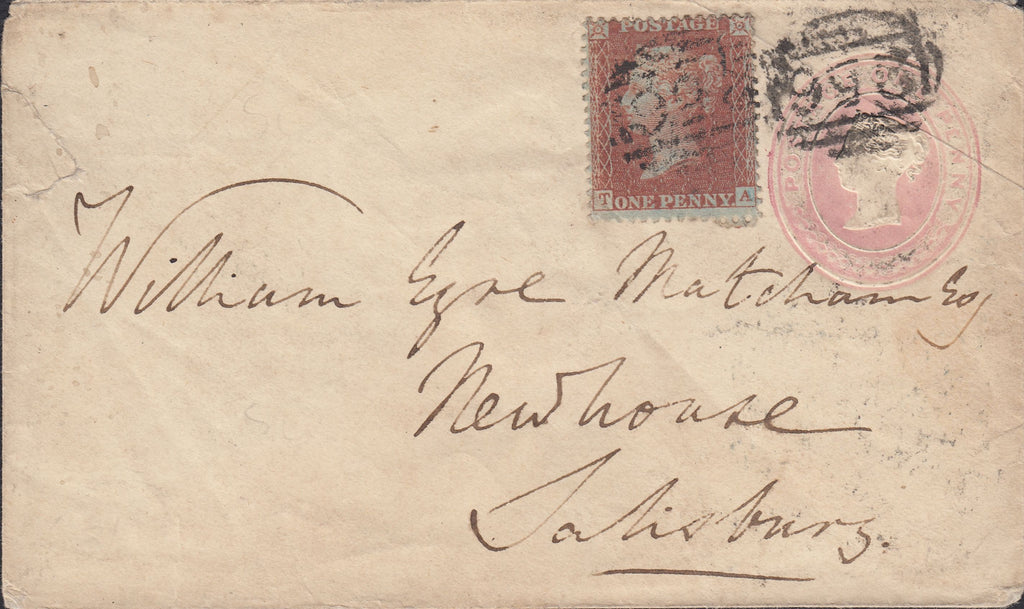 POSTAGE
T ONE PENNY A
William Eyre Matcham Esq
Newhouse
Salisbury.